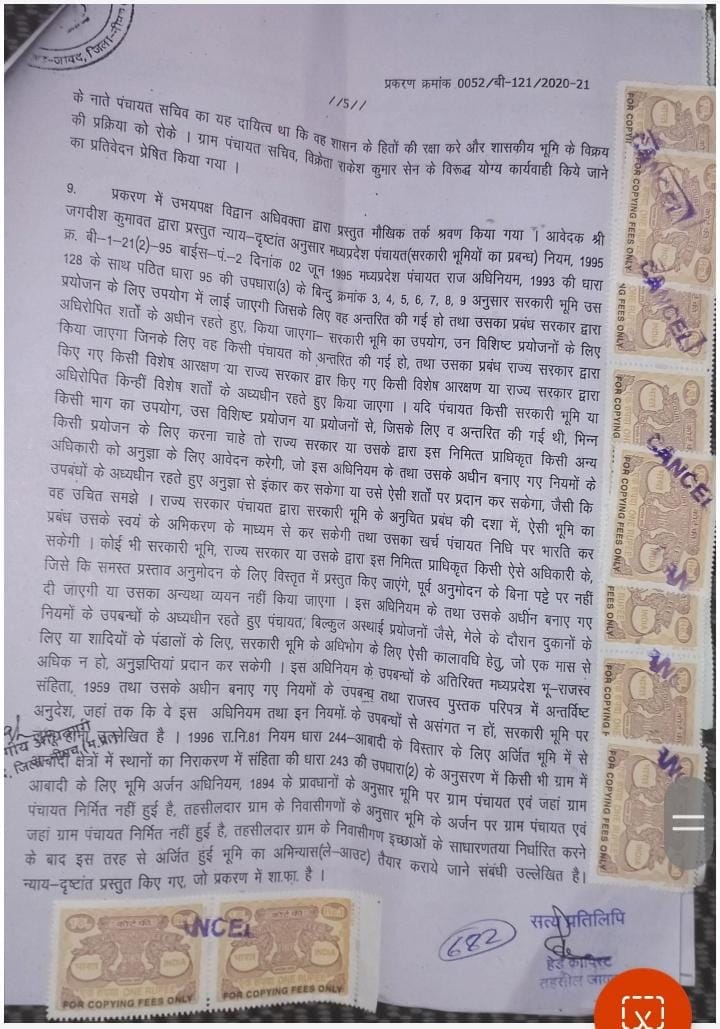 जावद, जिला-नीमच
प्रकरण क्रमांक 0052/बी-121/2020-21
//5//
के नाते पंचायत सचिव का यह दायित्व था कि वह शासन के हितों की रक्षा करे और शासकीय भूमि के विक्रय
की प्रक्रिया को रोके । ग्राम पंचायत सचिव, विक्रेता राकेश कुमार सेन के विरूद्ध योग्य कार्यवाही किये जाने
का प्रतिवेदन प्रेषित किया गया ।
9. प्रकरण में उभयपक्ष विद्वान अधिवक्ता द्वारा प्रस्तुत मौखिक तर्क श्रवण किया गया । आवेदक श्री
जगदीश कुमावत द्वारा प्रस्तुत न्याय-दृष्टांत अनुसार मध्यप्रदेश पंचायत(सरकारी भूमियों का प्रबन्ध) नियम, 1995
क्र. बी-1-21(2)-95 बाईस-पं.-2 दिनांक 02 जून 1995 मध्यप्रदेश पंचायत राज अधिनियम, 1993 की धारा
128 के साथ पठित धारा 95 की उपधारा(3) के बिन्दु क्रमांक 3, 4, 5, 6, 7, 8, 9 अनुसार सरकारी भूमि उस
प्रयोजन के लिए उपयोग में लाई जाएगी जिसके लिए वह अन्तरित की गई हो तथा उसका प्रबंध सरकार द्वारा
अधिरोपित शर्तो के अधीन रहते हुए, किया जाएगा– सरकारी भूमि का उपयोग, उन विशिष्ट प्रयोजनों के लिए
किया जाएगा जिनके लिए वह किसी पंचायत को अन्तरित की गई हो, तथा उसका प्रबंध राज्य सरकार द्वारा
किए गए किसी विशेष आरक्षण या राज्य सरकार द्वार किए गए किसी विशेष आरक्षण या राज्य सरकार द्वारा
अधिरोपित किन्हीं विशेष शर्तो के अध्यधीन रहते हुए किया जाएगा । यदि पंचायत किसी सरकारी भूमि या
किसी भाग का उपयोग, उस विशिष्ट प्रयोजन या प्रयोजनों से, जिसके लिए व अन्तरित की गई थी, भिन्न
किसी प्रयोजन के लिए करना चाहे तो राज्य सरकार या उसके द्वारा इस निमित्त प्राधिकृत किसी अन्य
अधिकारी को अनुज्ञा के लिए आवेदन करेगी, जो इस अधिनियम के तथा उसके अधीन बनाए गए नियमों के
उपबंधों के अध्यधीन रहते हुए अनुज्ञा से इंकार कर सकेगा या उसे ऐसी शर्तो पर प्रदान कर सकेगा, जैसी कि
वह उचित समझे । राज्य सरकार पंचायत द्वारा सरकारी भूमि के अनुचित प्रबंध की दशा में, ऐसी भूमि का
प्रबंध उसके स्वयं के अभिकरण के माध्यम से कर सकेगी तथा उसका खर्च पंचायत निधि पर भारति कर
सकेगी । कोई भी सरकारी भूमि, राज्य सरकार या उसके द्वारा इस निमित्त प्राधिकृत किसी ऐसे अधिकारी के,
जिसे कि समस्त प्रस्ताव अनुमोदन के लिए विस्तृत में प्रस्तुत किए जाएंगे, पूर्व अनुमोदन के बिना पट्टे पर नहीं
दी जाएगी या उसका अन्यथा व्ययन नहीं किया जाएगा । इस अधिनियम के तथा उसके अधीन बनाए गए
नियमों के उपबन्धों के अध्यधीन रहते हुए पंचायत, बिल्कुल अस्थाई प्रयोजनों जैसे, मेले के दौरान दुकानों के
लिए या शादियों के पंडालों के लिए, सरकारी भूमि के अधिभोग के लिए ऐसी कालावधि हेतु, जो एक मास से
अधिक न हो, अनुज्ञप्तियां प्रदान कर सकेगी । इस अधिनियम के उपबन्धों के अतिरिक्त मध्यप्रदेश भू-राजस्व
संहिता, 1959 तथा उसके अधीन बनाए गए नियमों के उपबन्ध तथा राजस्व पुस्तक परिपत्र में अन्तर्विष्ट
अनुदेश, जहां तक कि वे इस अधिनियम तथा इन नियमों के उपबन्धों से असंगत न हों, सरकारी भूमि पर
उल्लेखित है । 1996 रा.नि.81 नियम धारा 244-आबादी के विस्तार के लिए अर्जित भूमि में से
क्षेत्रों में स्थानों का निराकरण में संहिता की धारा 243 की उपधारा(2) के अनुसरण में किसी भी ग्राम में
आबादी के लिए भूमि अर्जन अधिनियम, 1894 के प्रावधानों के अनुसार भूमि पर ग्राम पंचायत एवं जहां ग्राम
पंचायत निर्मित नहीं हुई है, तहसीलदार ग्राम के निवासीगणों के अनुसार भूमि के अर्जन पर ग्राम पंचायत एवं
जहां ग्राम पंचायत निर्मित नहीं हुई है, तहसीलदार ग्राम के निवासीगण इच्छाओं के साधारणतया निर्धारित करने
के बाद इस तरह से अर्जित हुई भूमि का अभिन्यास(ले-आउट) तैयार कराये जाने संबंधी उल्लेखित है।
न्याय-दृष्टांत प्रस्तुत किए गए, जो प्रकरण में शा.फा. है ।
682
सत्य प्रतिलिपि
हेड कापिस्ट
तहसील
FOR COPYING FEES ONLY
FOR COPYING FEES ONLY
CANCEL
CANCEL
CANCEL
FOR COPYING FEES ONLY
FOR COPYING
FOR COPYING FEES ONLY
FEES ONLY
FOR COPYING FEES ONLY
FOR COPYING FEES ONLY